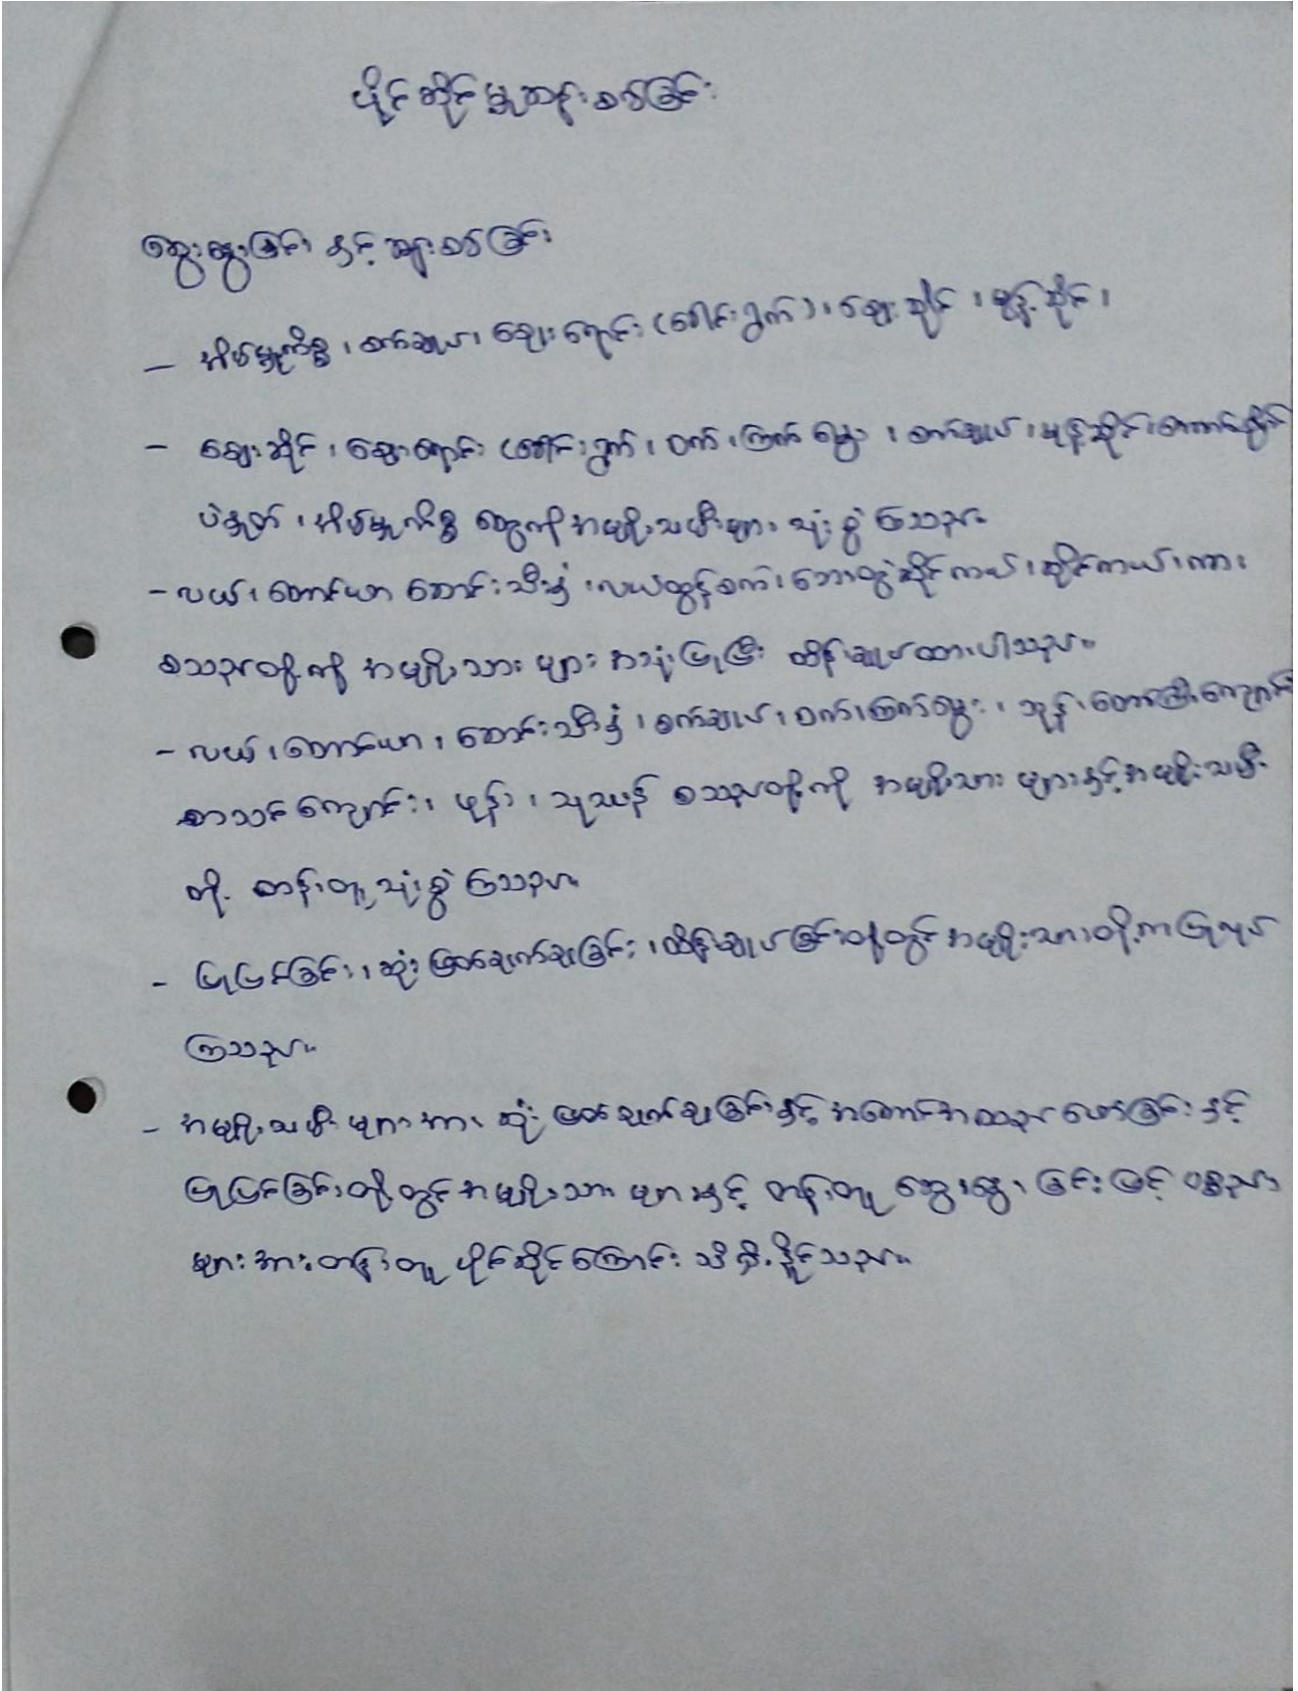 ပိုင်ဆိုင်မှုဆန်းစစ်ခြင်း
ဆွေးနွေးခြင်း နှင့် အများစစ်ခြင်း
– အိမ်မှုကိစ္စ ၊ စက်ချုပ် ၊ ဈေးရောင်း (ခေါင်းရွက်) ၊ ဈေးဆိုင် ၊ မုန့်ဆိုင် ၊
– ဈေးဆိုင် ၊ ဈေးရောင်း (ခေါင်းရွက် ၊ ဝက် ၊ ကြက်မွေး ၊ စက်ချုပ် ၊ မုန့်ဆိုင် ၊
ပဲနှုတ် ၊ အိမ်မှုကိစ္စ တွေကို အမျိုးသမီးများ သုံးစွဲကြသည်။
– လယ် ၊ တောင်ယာ ဆောင်းသီးနှံ ၊ လယ်ထွန်စက် ၊ ဘောတွဲဆိုင်ကယ် ၊ ဆိုင်ကယ် ၊ ကား
စသည်တို့ကို အမျိုးသား များ အသုံးပြုပြီး ထိန်းချုပ်ထားပါသည်။
– လယ် ၊ တောင်ယာ ၊ ဆောင်းသီးနှံ ၊ စက်ချုပ် ၊ ဝက် ၊ ကြက်မွေး ၊
စာသင်ကျောင်း ၊ ဖုန်း ၊ သုဿန် စသည်တို့ကို အမျိုးသား များနှင့် အမျိုးသမီး
တို့ တန်းတူ သုံးစွဲကြသည်။
– ပြုပြင်ခြင်း ၊ ဆုံးဖြတ်ချက်ချခြင်း ၊ ထိန်းချုပ်ခြင်းတို့တွင် အမျိုးသားတို့ကပြုလုပ်
ကြသည်။
– အမျိုးသမီးများအား ဆုံးဖြတ်ချက်ချခြင်းနှင့် အကောင်အထည်ဖော်ခြင်းနှင့်
ပြုပြင်ခြင်းတို့တွင် အမျိုးသား များနှင့် တန်းတူ ဆွေးနွေးခြင်းဖြင့် ပစ္စည်း
များအားတန်းတူ ပိုင်ဆိုင်ကြောင်း သိရှိနိုင်သည်။